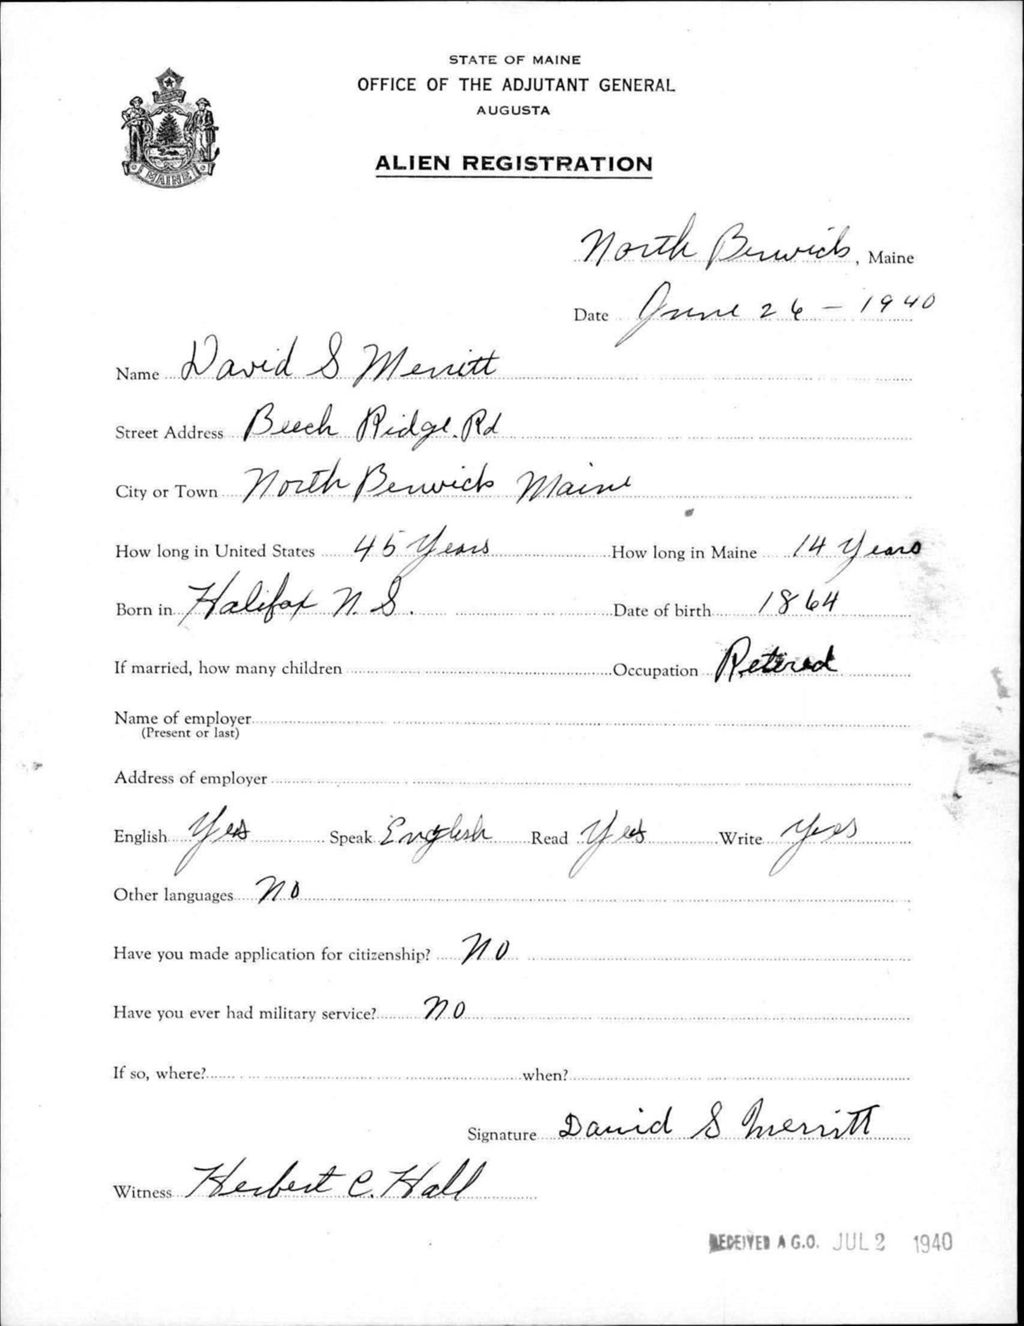 STATE OF MAINE
OFFICE OF THE ADJUTANT GENERAL
AUGUSTA
ALIEN REGISTRATION
MAINE
North Berwick, Maine
Date June 26 - 1940
Name David S Merritt
Street Address Beech Ridge Rd
City or Town North Berwick Maine
How long in United States 45 Years How long in Maine 14 Years
Born in Halifax N. S. Date of birth 1864
If married, how many children Occupation Retired
Name of employer
(Present or last)
Address of employer
English Yes Speak English Read Yes Write Yes
Other languages No
Have you made application for citizenship? No
Have you ever had military service? No
If so, where? when?
Signature David S Merritt
Witness Herbert C. Hall
RECEIVED A G.O. JUL 2 1940